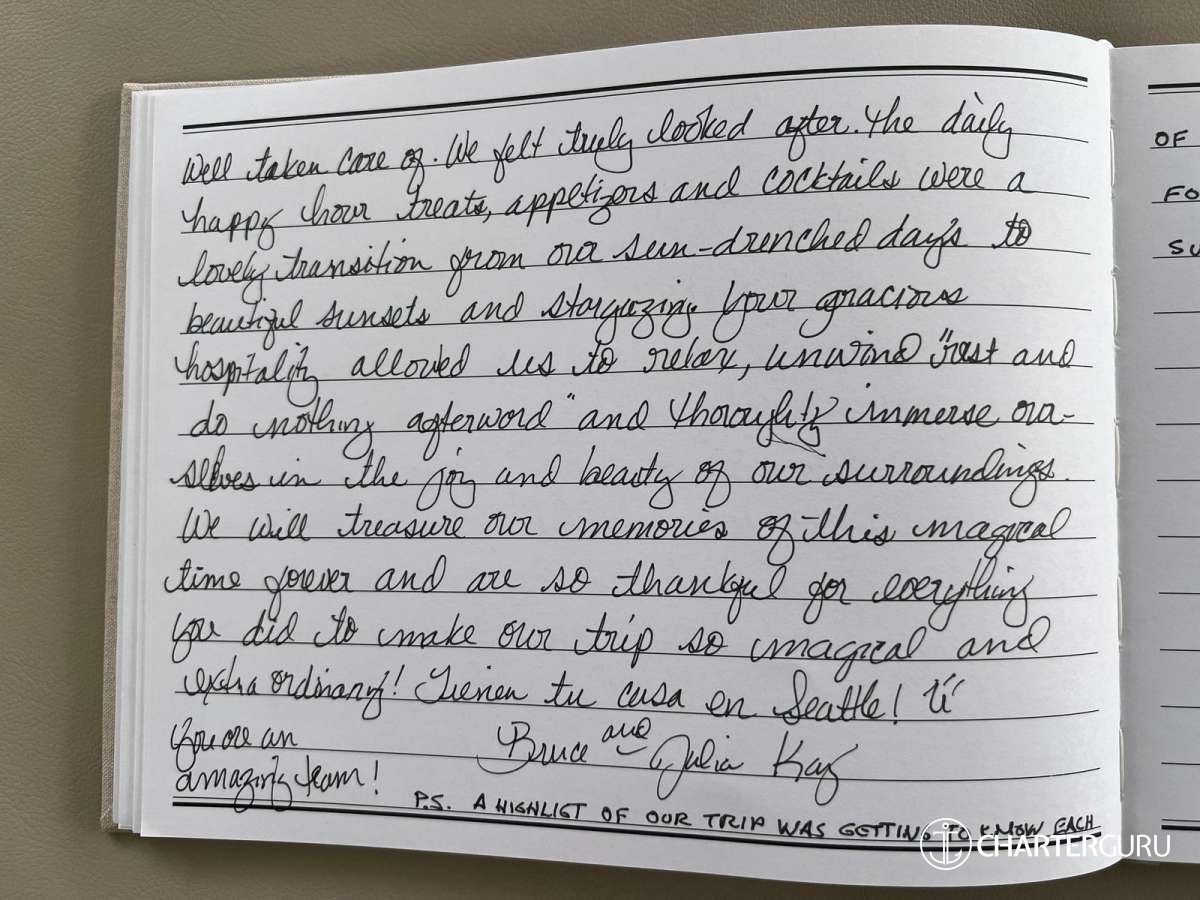 well taken care of. We felt truly looked after. The daily
happy hour treats, appetizers and cocktails were a
lovely transition from our sun-drenched days to
beautiful sunsets and stargazing. Your gracious
hospitality allowed us to relax, unwind "rest and
do nothing afterword" and thoroughly immerse our-
selves in the joy and beauty of our surroundings.
We will treasure our memories of this magical
time forever and are so thankful for everything
you did to make our trip so magical and
extraordinary! Tienen tu casa en Seattle!
You are an
amazing team!
Bruce and Julia Kay
P.S. A HIGHLIGT OF OUR TRIP WAS GETTING TO KNOW EACH
OF
FO
SU
CHARTERGURU